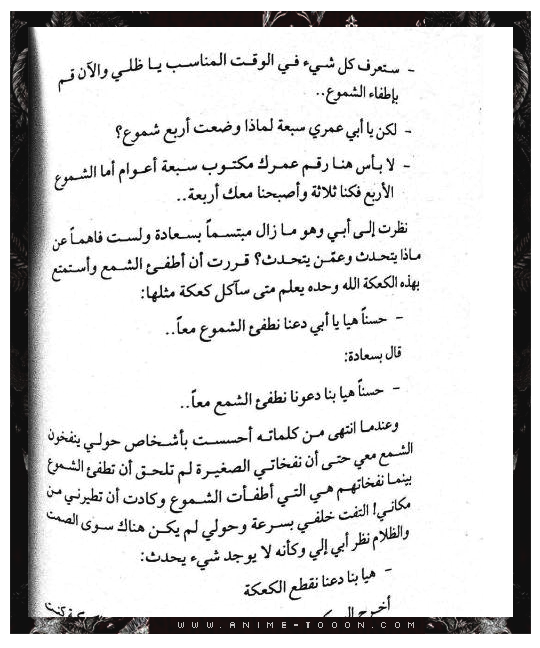 - ستعرف كل شيء في الوقت المناسب يا ظلي والآن قم
بإطفاء الشموع..
- لكن يا أبي عمري سبعة لماذا وضعت أربع شموع؟
- لا بأس هنا رقم عمرك مكتوب سبعة أعوام أما الشموع
الأربع فكنا ثلاثة وأصبحنا معك أربعة..
نظرت إلى أبي وهو ما زال مبتسماً بسعادة ولست فاهماً عن
ماذا يتحدث وعمّن يتحدث؟ قررت أن أطفئ الشمع وأستمتع
بهذه الكعكة الله وحده يعلم متى سآكل كعكة مثلها:
- حسناً هيا يا أبي دعنا نطفئ الشموع معاً..
قال بسعادة:
- حسناً هيا بنا دعونا نطفئ الشمع معاً..
وعندما انتهى من كلماته أحسست بأشخاص حولي ينفخون
الشمع معي حتى أن نفخاتي الصغيرة لم تلحق أن تطفئ الشموع
بينما نفخاتهم هي التي أطفأت الشموع وكادت أن تطيرني من
مكاني! التفت خلفي بسرعة وحولي لم يكن هناك سوى الصمت
والظلام نظر أبي إلي وكأنه لا يوجد شيء يحدث:
- هيا بنا دعنا نقطع الكعكة
أخرج
WWW.ANIME-TOOON.COM